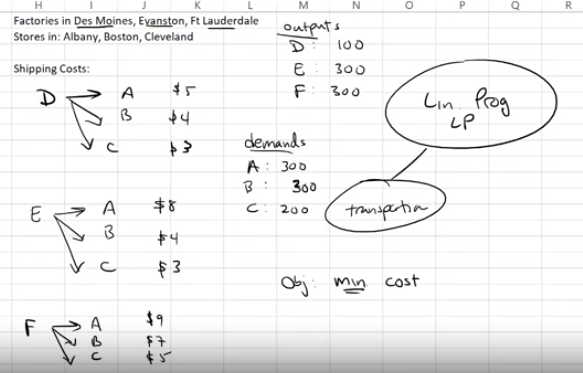 H I J K L M N O P Q R
Factories in Des Moines, Evanston, Ft Lauderdale
Stores in: Albany, Boston, Cleveland
Shipping Costs:
D A $5
B $4
C $3
E A $8
B $4
C $3
F A $9
B $7
C $5
outputs
D: 100
E: 300
F: 300
demands
A: 300
B: 300
C: 200
Lin. Prog
LP
transportion
Obj: min cost